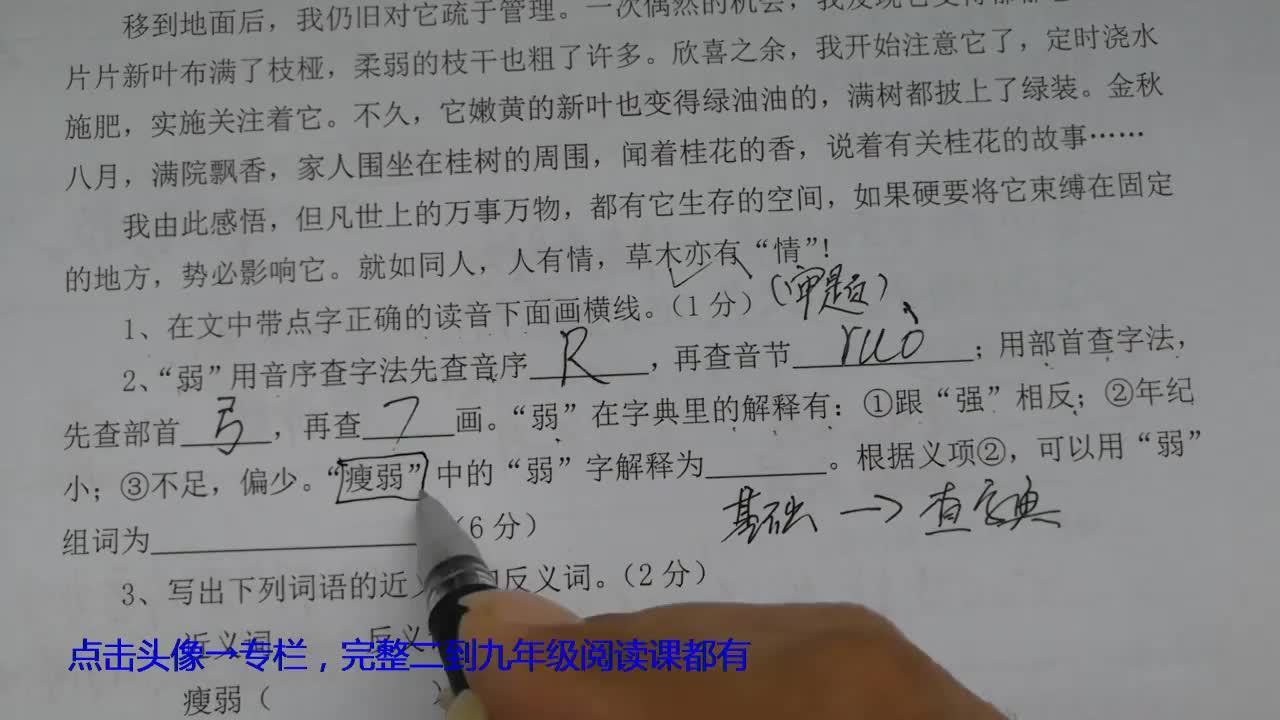 移到地面后，我仍旧对它疏于管理。一次偶然的机会，我发现它变得郁郁
片片新叶布满了枝桠，柔弱的枝干也粗了许多。欣喜之余，我开始注意它了，定时浇水
施肥，实施关注着它。不久，它嫩黄的新叶也变得绿油油的，满树都披上了绿装。金秋
八月，满院飘香，家人围坐在桂树的周围，闻着桂花的香，说着有关桂花的故事……
我由此感悟，但凡世上的万事万物，都有它生存的空间，如果硬要将它束缚在固定
的地方，势必影响它。就如同人，人有情，草木亦有“情”！
1、在文中带点字正确的读音下面画横线。（1分）（审题）
2、“弱”用音序查字法先查音序 R ，再查音节 ruò ；用部首查字法，
先查部首 弓 ，再查 7 画。“弱”在字典里的解释有：①跟“强”相反；②年纪
小；③不足，偏少。“瘦弱”中的“弱”字解释为______。根据义项②，可以用“弱”
基础→查字典
组词为______（6分）
3、写出下列词语的近义词和反义词。（2分）
近义词 反义
点击头像→专栏，完整二到九年级阅读课都有
瘦弱（ ）